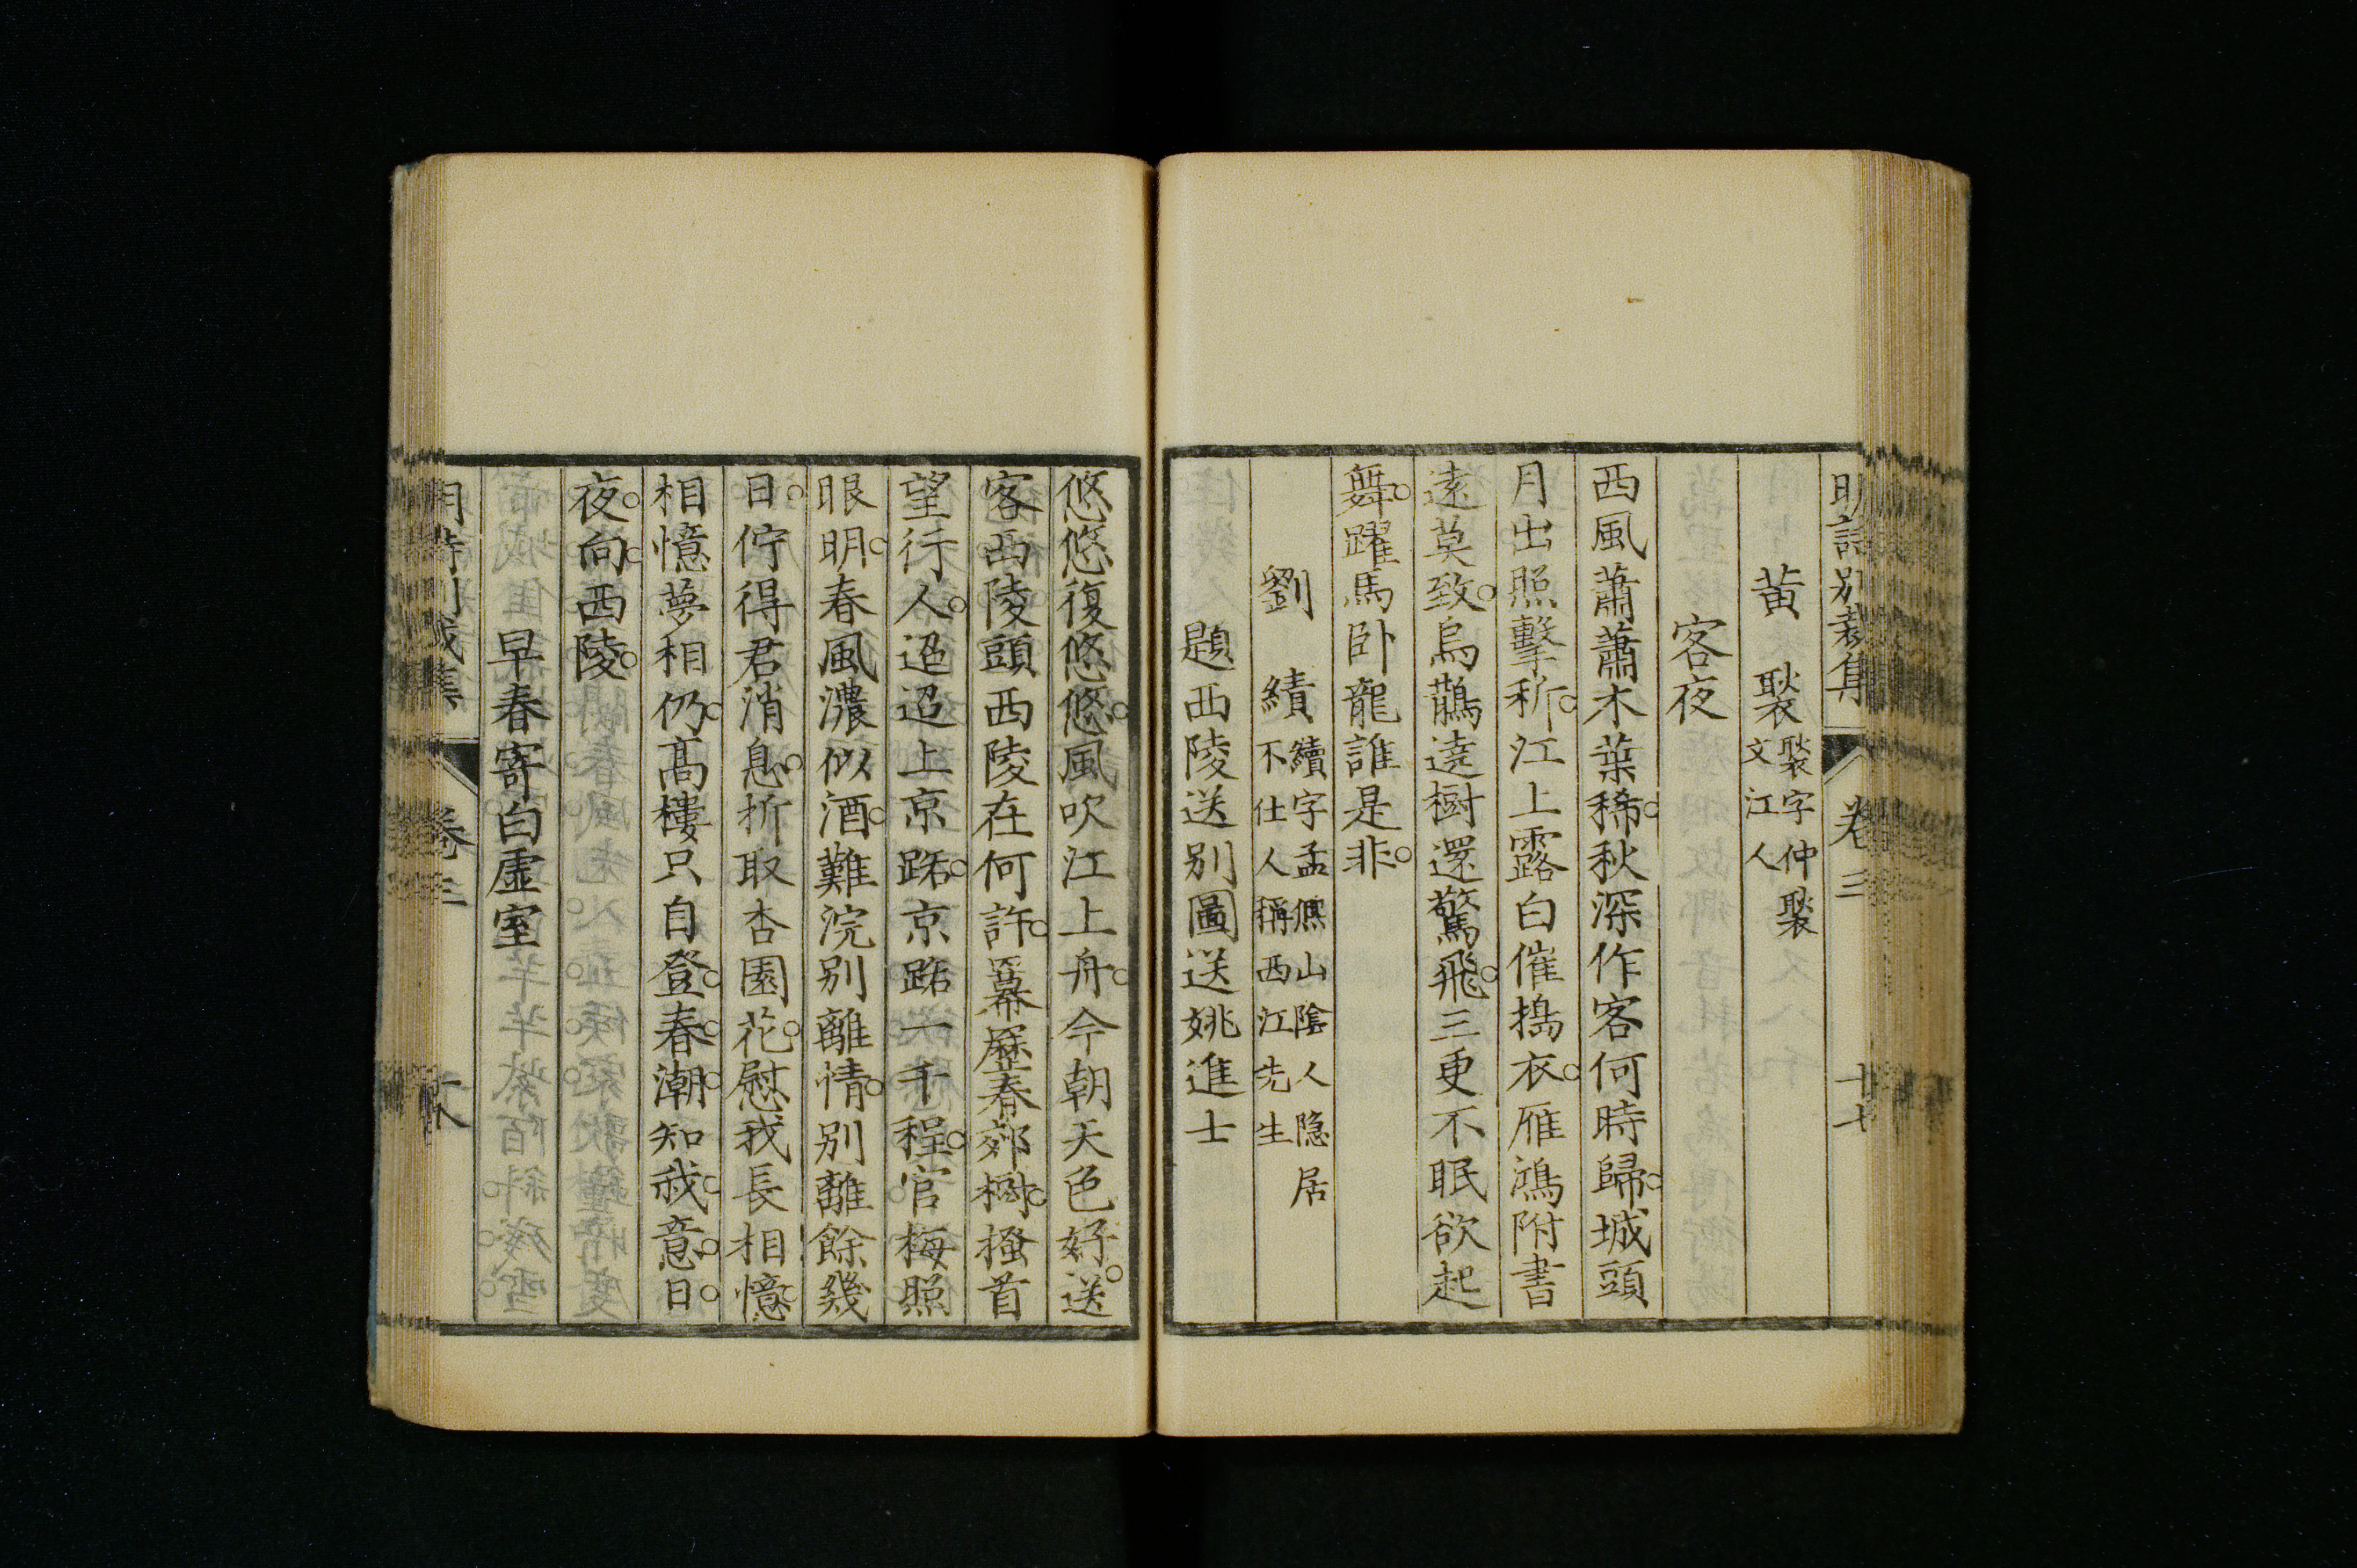 明詩別裁集 卷三 十七
黃 褧 褧字仲褧文江人
客夜
西風蕭蕭木葉稀秋深作客何時歸城頭
月出照擊柝江上露白催搗衣雁鴻附書
遠莫致烏鵲遶樹還驚飛三更不眠欲起
舞躍馬卧龍誰是非
劉 績 績字孟熙山陰人隱居不仕人稱西江先生
題西陵送别圖送姚進士
悠悠復悠悠風吹江上舟今朝天色好送
客西陵頭西陵在何許羃歷春郊樹搔首
望行人迢迢上京路京路一千程官梅照
眼明春風濃似酒難浣别離情别離餘幾
日佇得君消息折取杏園花慰我長相憶
相憶夢相仍髙樓只自登春潮知我意日
夜向西陵
早春寄白虛室
明詩别裁集 卷三